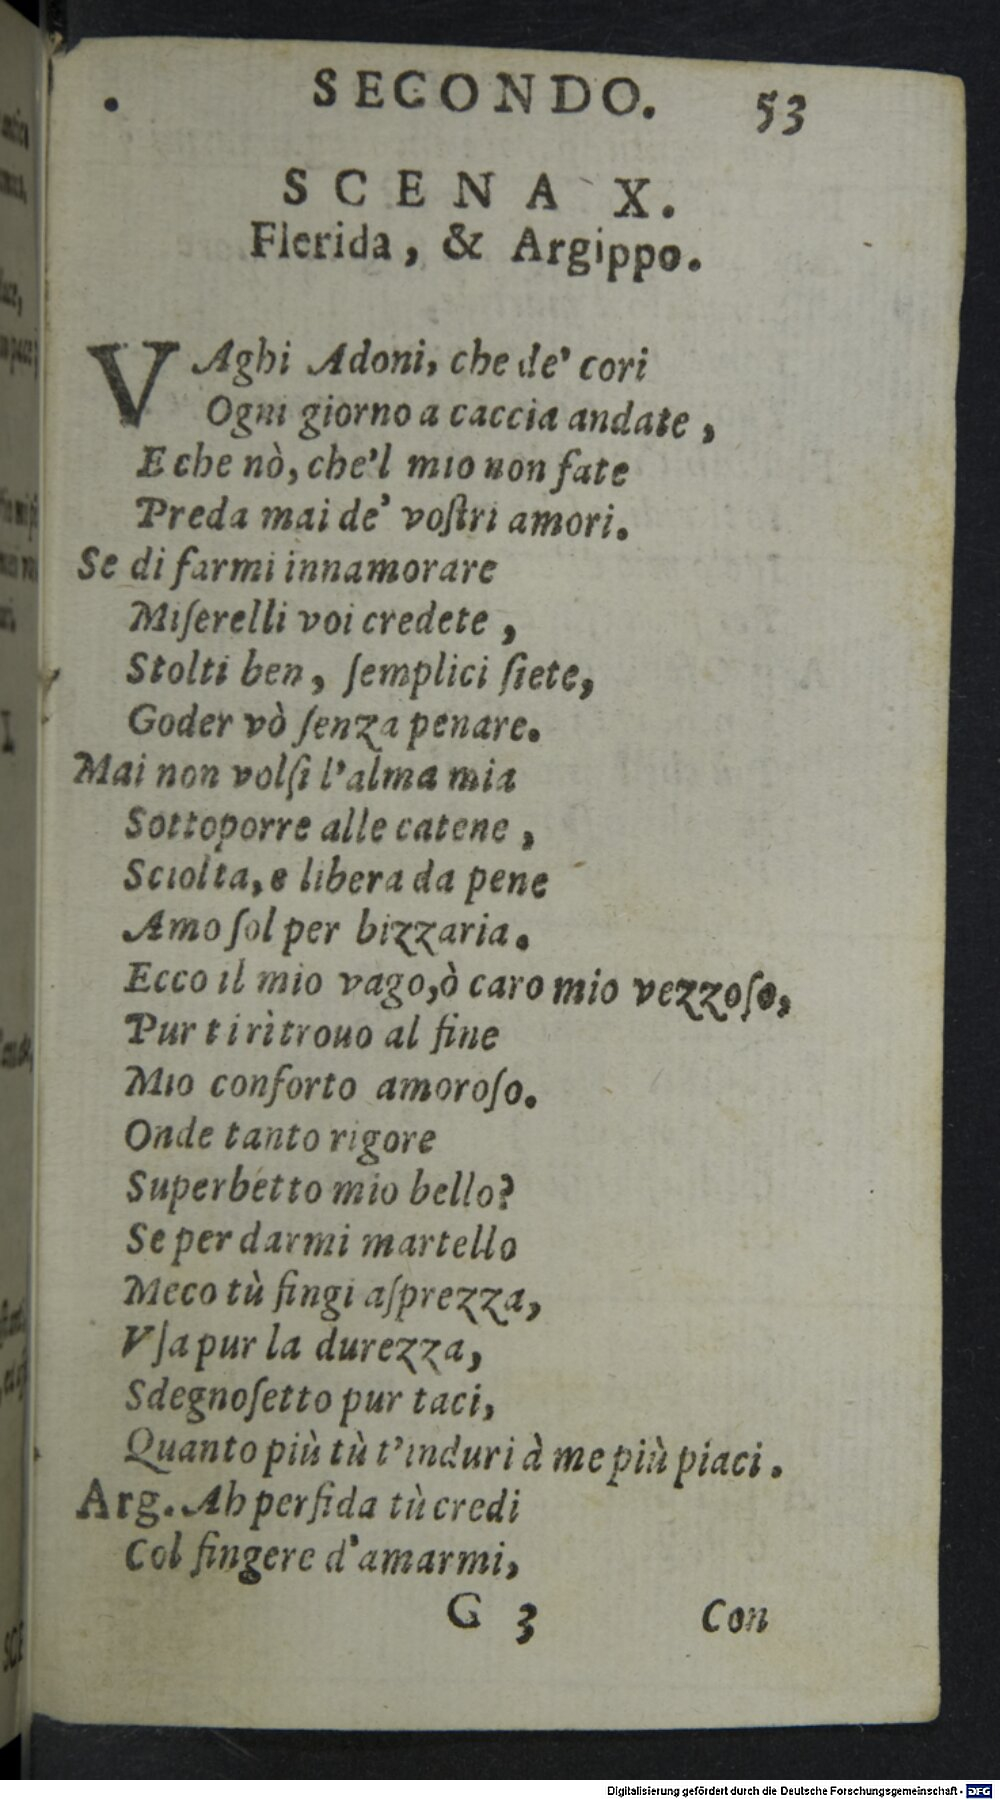 SECONDO. 53
SCENA X.
Flerida, & Argippo.
VAghi Adoni, che de' cori
Ogni giorno a caccia andate,
E che nò, che'l mio non fate
Preda mai de' voſtri amori.
Se di farmi innamorare
Miſerelli voi credete,
Stolti ben, ſemplici ſiete,
Goder vò ſenza penare.
Mai non volſi l'alma mia
Sottoporre alle catene,
Sciolta, e libera da pene
Amo ſol per bizzaria.
Ecco il mio vago, ò caro mio vezzoſo,
Pur ti rìtrouo al fine
Mio conforto amoroſo.
Onde tanto rigore
Superbetto mio bello?
Se per darmi martello
Meco tù fingi aſprezza,
Vſa pur la durezza,
Sdegnoſetto pur taci,
Quanto più tù t'induri à me più piaci.
Arg. Ah perfida tù credi
Col fingere d'amarmi,
G 3 Con
Digitalisierung gefördert durch die Deutsche Forschungsgemeinschaft - DFG